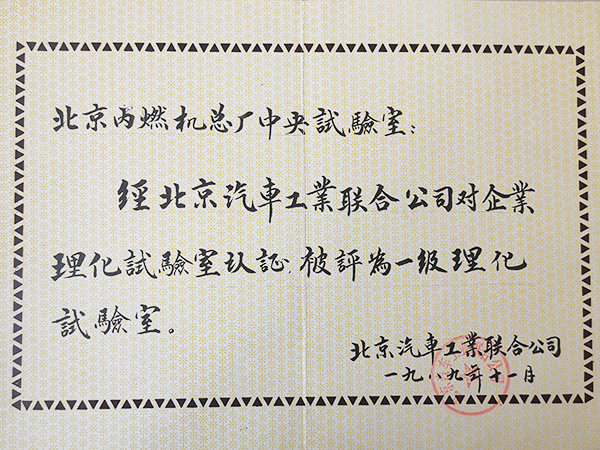 北京内燃机总厂中央試驗室：
經北京汽車工業联合公司对企業
理化試驗室认証，被評為一级理化
試驗室。
北京汽車工業联合公司
一九八九年十一月